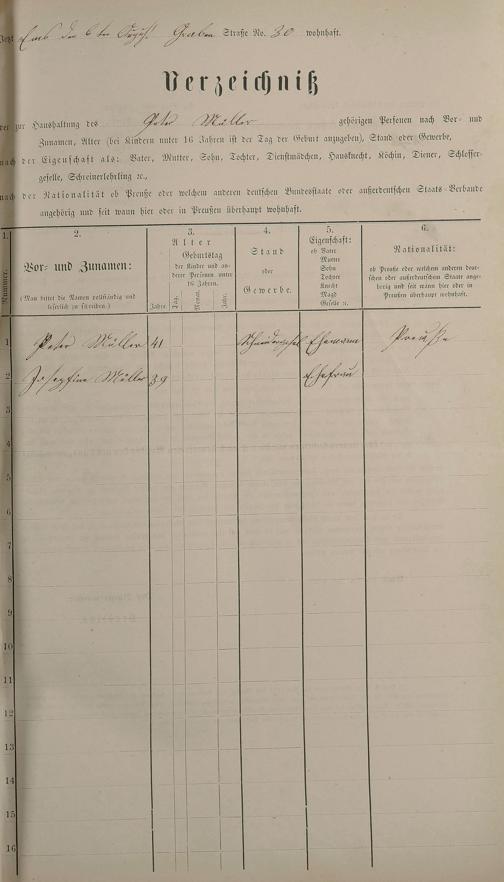 Jetzt Ems den 6ten Graben Straße No. 30 wohnhaft.
Verzeichniß
der zur Haushaltung des Peter Müller gehörigen Personen nach Vor- und
Zunamen, Alter (bei Kindern unter 16 Jahren ist der Tag der Geburt anzugeben), Stand oder Gewerbe,
nach der Eigenschaft als: Vater, Mutter, Sohn, Tochter, Dienstmädchen, Hausknecht, Köchin, Diener, Schlosser-
geselle, Schreinerlehrling ꝛc.,
nach der Nationalität ob Preuße oder welchem anderen deutschen Bundesstaate oder außerdeutschen Staats-Verbande
angehörig und seit wann hier oder in Preußen überhaupt wohnhaft.
1.
Nummer.
2.
Vor- und Zunamen:
(Man bittet die Namen vollständig und
leserlich zu schreiben.)
3.
Alter
Geburtstag
der Kinder und an-
derer Personen unter
16 Jahren.
Jahre.
Tag.
Monat.
Jahr.
4.
Stand
oder
Gewerbe.
5.
Eigenschaft:
ob Vater
Mutter
Sohn
Tochter
Knecht
Magd
Geselle ꝛc.
6.
Nationalität:
ob Preuße oder welchem anderen deut-
schen oder außerdeutschen Staate ange-
hörig und seit wann hier oder in
Preußen überhaupt wohnhaft.
1 Peter Müller 41 Ehemann Preuße
2 Josephine Müller 39 Ehefrau
3
4
5
6
7
8
9
10
11
12
13
14
15
16